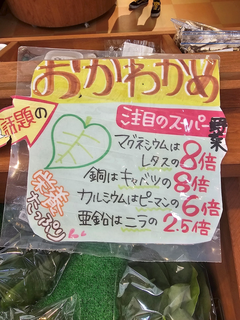 おかわかめ
話題の
注目のスーパー野菜
マグネシウムは
レタスの8倍
銅はキャベツの8倍
カルシウムはピーマンの6倍
亜鉛はニラの2.5倍
栄養
たっぷり